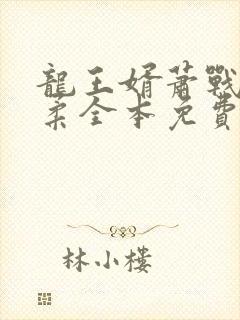 龍王婿蕭戰
柔全本免費
林小樓